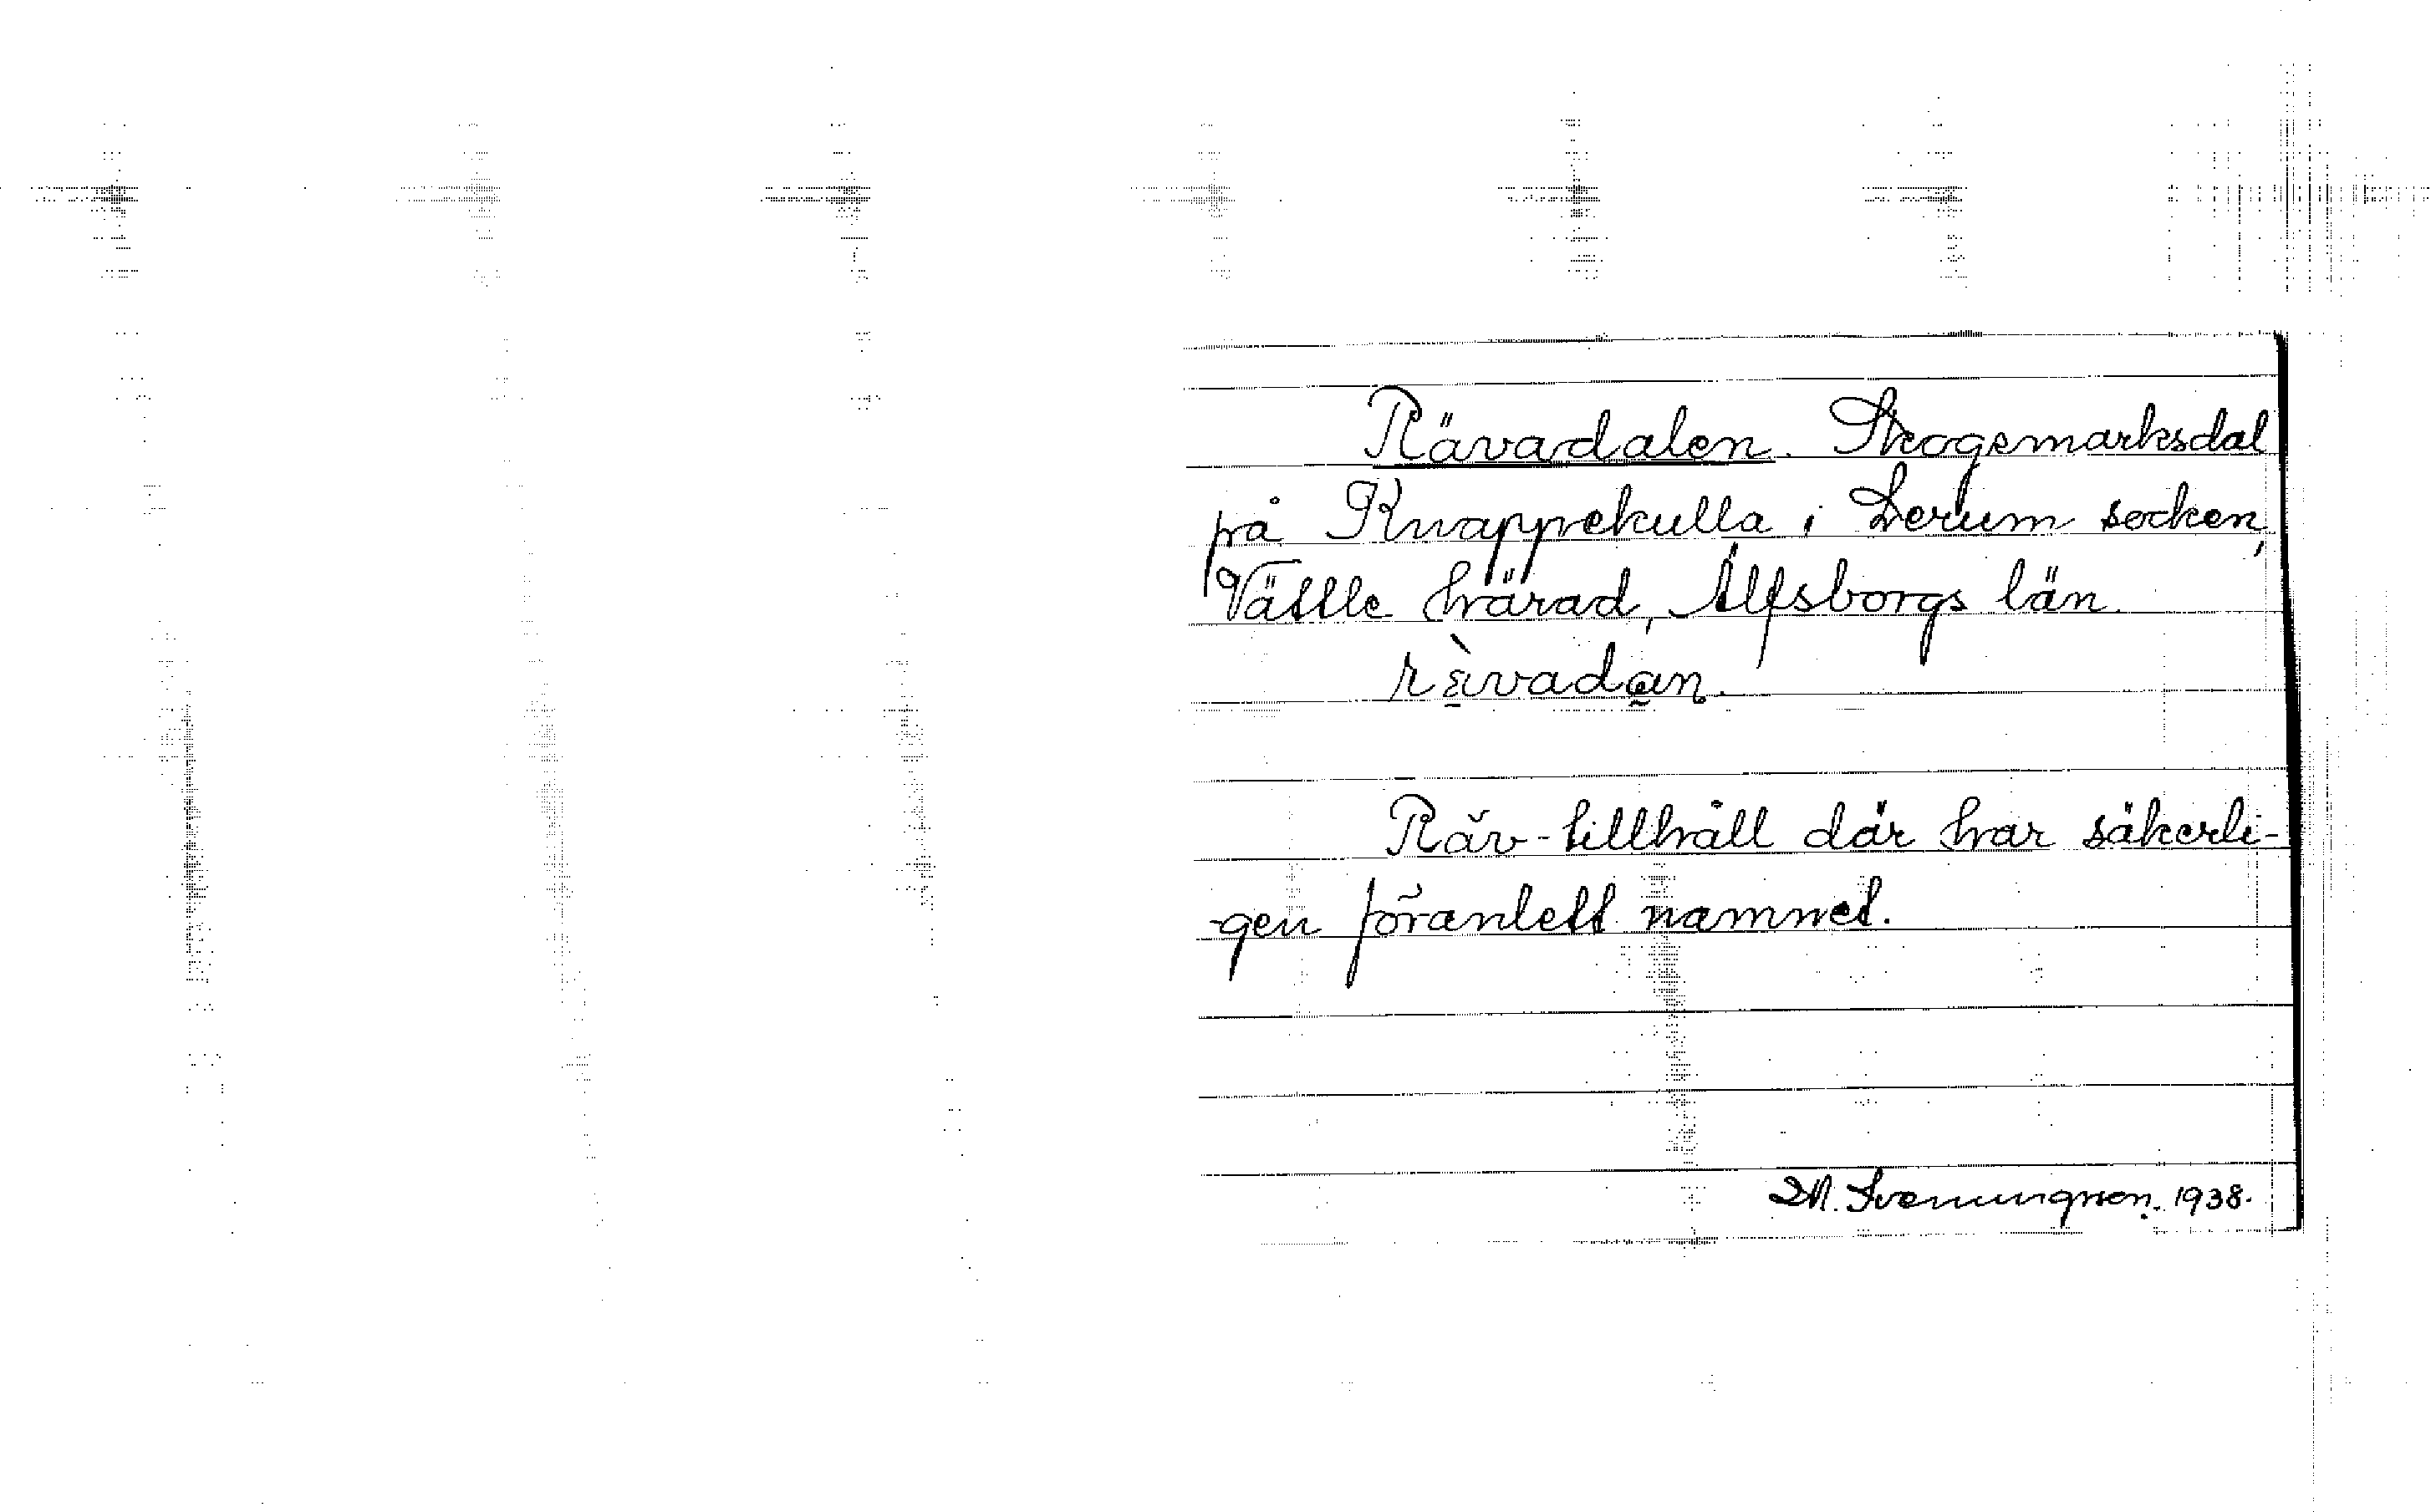 Rävadalen. Skogsmarksdal
på Knappekulla i Lerum socken,
Vättle härad, Älfsborgs län.
rävadan.
Räv-tillhåll där har säkerli-
gen föranlett namnet.
M. Svenungsson. 1938.